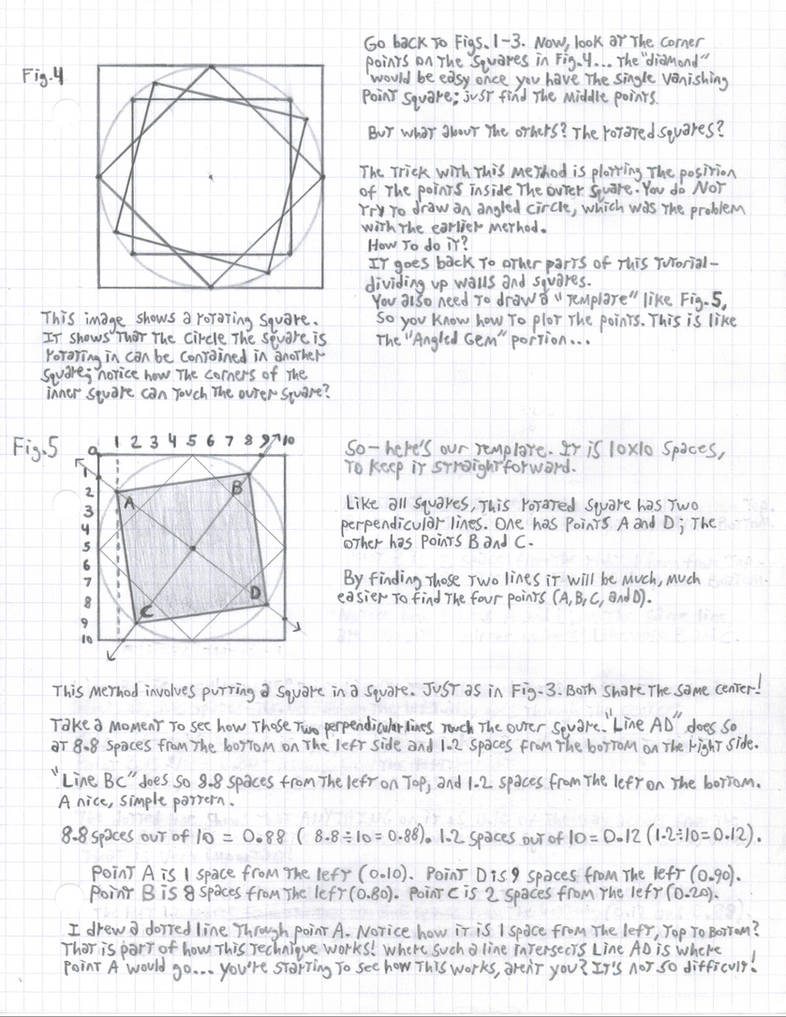 Go back to Figs. 1-3. Now, look at the corner
points on the squares in Fig.4... the "diamond"
would be easy once you have the single vanishing
point square; just find the middle points.
But what about the others? The rotated squares?
The trick with this method is plotting the position
of the points inside the outer square. You do NOT
try to draw an angled circle, which was the problem
with the earlier method.
How to do it?
It goes back to other parts of this tutorial-
dividing up walls and squares.
You also need to draw a "template" like Fig.5,
so you know how to plot the points. This is like
the "Angled Gem" portion...
Fig.4
This image shows a rotating square.
It shows that the circle the square is
rotating in can be contained in another
square; notice how the corners of the
inner square can touch the outer square?
Fig.5
0 1 2 3 4 5 6 7 8 9 10
1
2
3
4
5
6
7
8
9
10
A
B
C
D
So- here's our template. It is 10x10 spaces,
to keep it straightforward.
Like all squares, this rotated square has two
perpendicular lines. One has points A and D; the
other has points B and C.
By finding those two lines it will be much, much
easier to find the four points (A, B, C, and D).
This method involves putting a square in a square. Just as in Fig-3. Both share the same center!
Take a moment to see how those two perpendicular lines touch the outer square. "Line AD" does so
at 8.8 spaces from the bottom on the left side and 1.2 spaces from the bottom on the right side.
"Line BC" does so 8.8 spaces from the left on top, and 1.2 spaces from the left on the bottom.
A nice, simple pattern.
8.8 spaces out of 10 = 0.88 ( 8.8÷10=0.88). 1.2 spaces out of 10=0.12 (1.2÷10=0.12).
Point A is 1 space from the left (0.10). Point D is 9 spaces from the left (0.90).
Point B is 8 spaces from the left (0.80). Point C is 2 spaces from the left (0.20).
I drew a dotted line through point A. Notice how it is 1 space from the left, top to bottom?
That is part of how this technique works! Where such a line intersects Line AD is where
point A would go... you're starting to see how this works, aren't you? It's not so difficult!